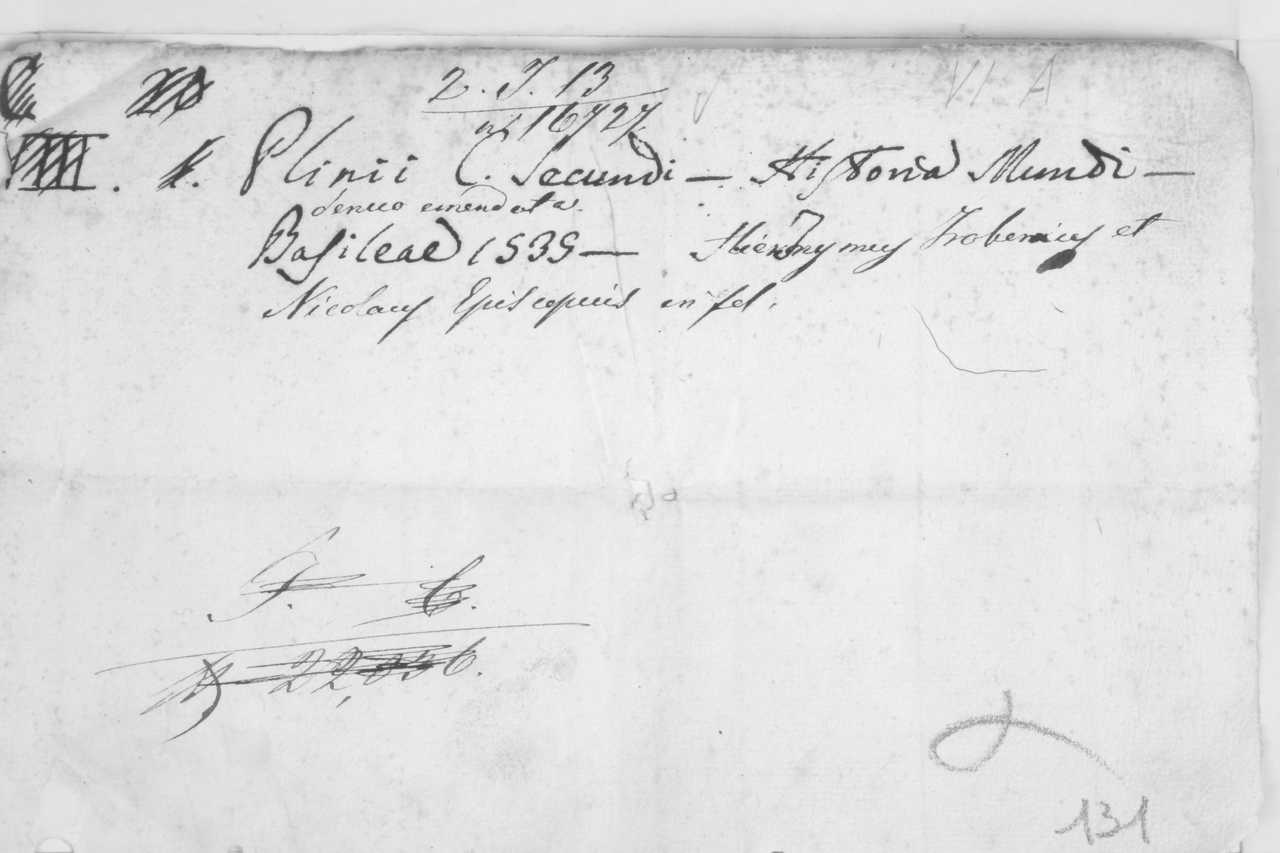 VI A
2. J. 13
16727
Plinii C. Secundi — Historia Mundi —
denuo emendata.
Basileae 1535 — Hieronymus Frobenius et
Nicolaus Episcopius in fol.
22,856.
131